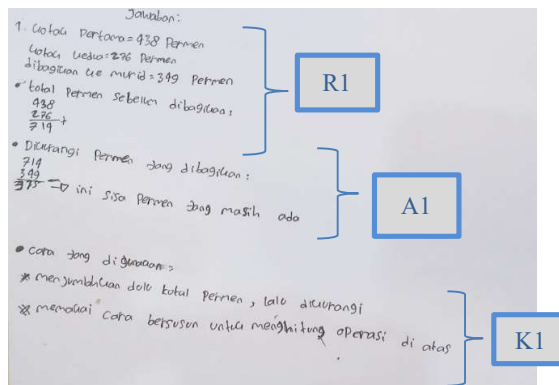 Jawaban:
1. Kotak Pertama = 438 Permen
Kotak kedua = 276 Permen
dibagikan ke murid = 349 Permen
• total Permen sebelum dibagikan:
438
276 +
714
R1
• Dikurangi Permen yang dibagikan:
714
349 -
375 → ini sisa Permen yang masih ada
A1
• Cara yang digunakan:
* menjumlahkan dulu total Permen, lalu dikurangi
* memakai cara bersusun untuk menghitung operasi di atas
K1